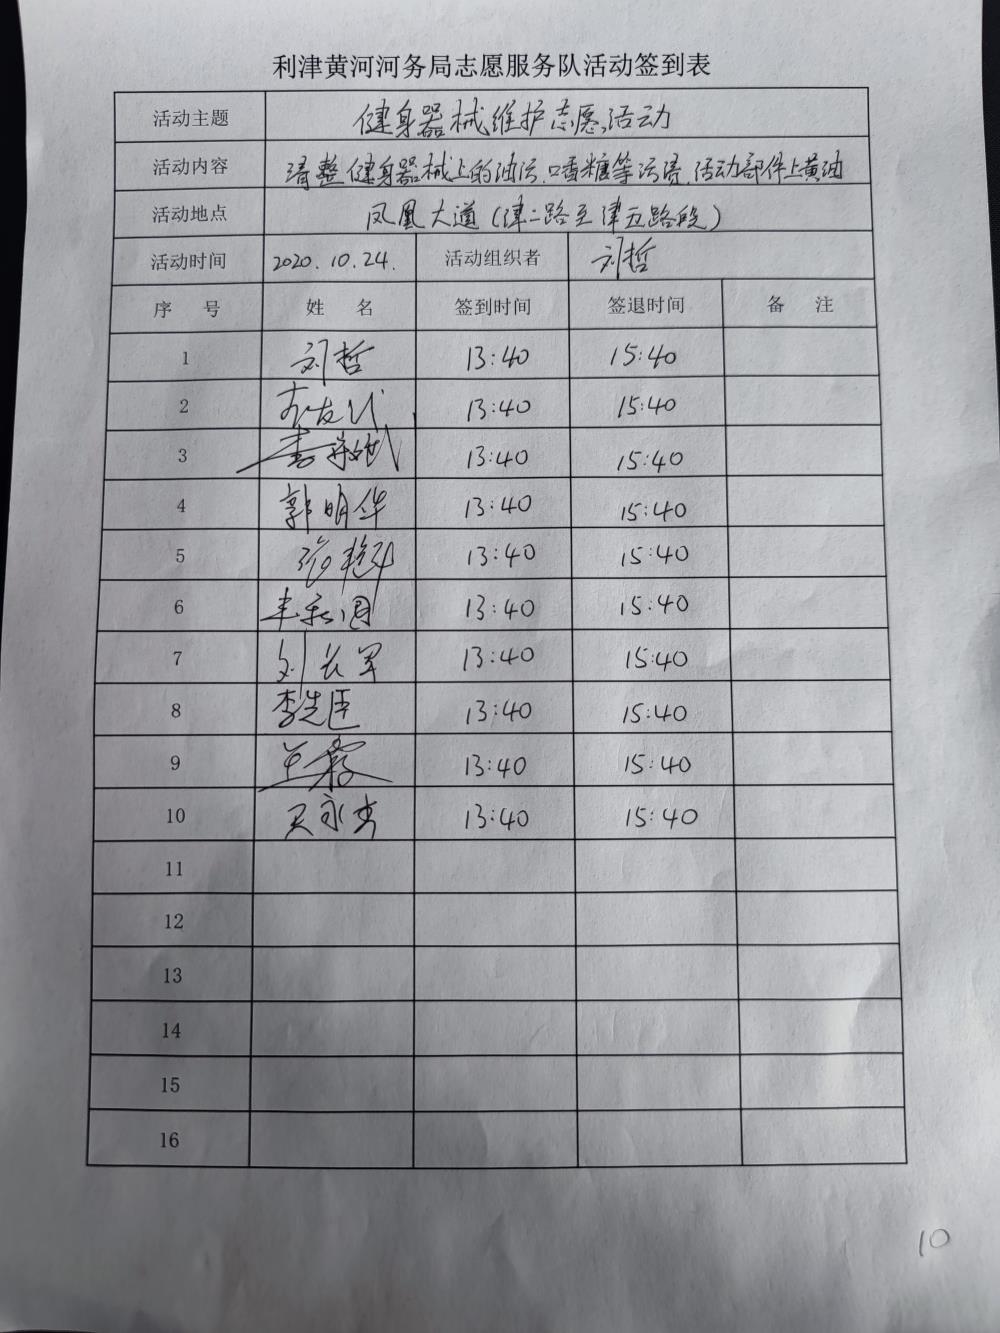 利津黄河河务局志愿服务队活动签到表
活动主题 健身器械维护志愿活动
活动内容 清整健身器械上的油污、口香糖等污渍,活动部件上黄油
活动地点 凤凰大道(津二路至津五路段)
活动时间 2020.10.24. 活动组织者 刘哲
序 号 姓 名 签到时间 签退时间 备 注
1 刘哲 13:40 15:40
2 13:40 15:40
3 13:40 15:40
4 郭明华 13:40 15:40
5 13:40 15:40
6 13:40 15:40
7 刘长军 13:40 15:40
8 李先臣 13:40 15:40
9 13:40 15:40
10 13:40 15:40
11
12
13
14
15
16
10